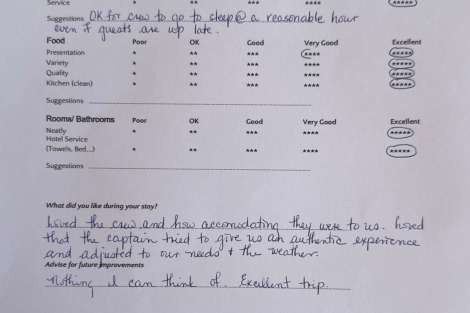 Service * ** *** **** *****
Suggestions OK for crew to go to sleep @ a reasonable hour
even if guests are up late.
Food Poor OK Good Very Good Excellent
Presentation * ** *** **** *****
Variety * ** *** **** *****
Quality * ** *** **** *****
Kitchen (clean) * ** *** **** *****
Suggestions
Rooms/ Bathrooms Poor OK Good Very Good Excellent
Neatly * ** *** **** *****
Hotel Service
(Towels, Bed...) * ** *** **** *****
Suggestions
What did you like during your stay?
Loved the crew and how accomodating they were to us. Loved
that the captain tried to give us an authentic experience
and adjusted to our needs + the weather.
Advise for future improvements
Nothing I can think of. Excellent trip.